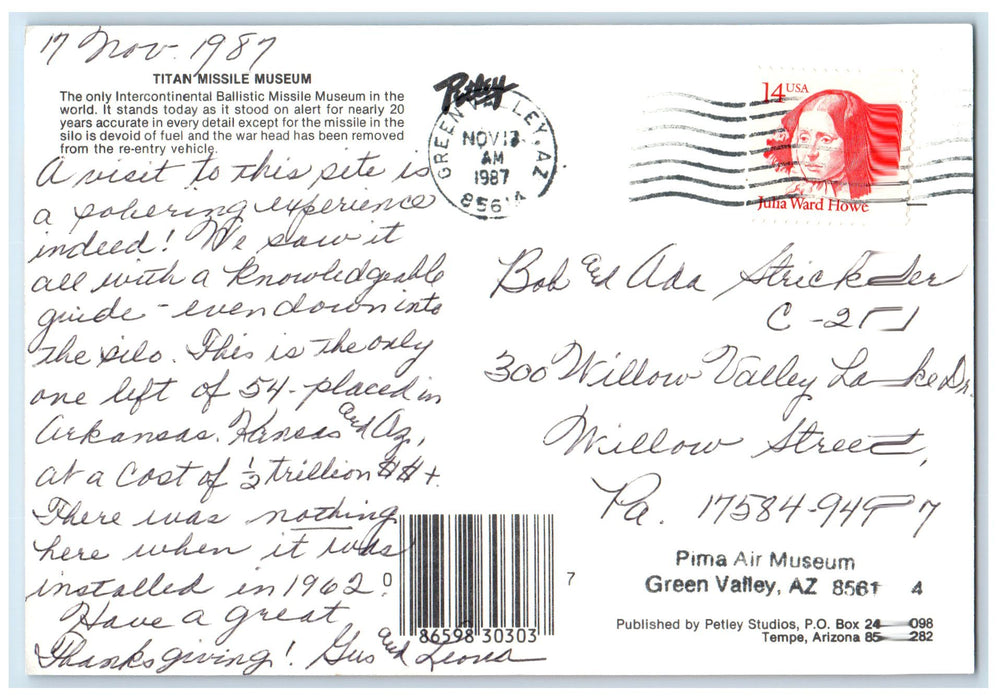 17 Nov. 1987
TITAN MISSILE MUSEUM
The only Intercontinental Ballistic Missile Museum in the
world. It stands today as it stood on alert for nearly 20
years accurate in every detail except for the missile in the
silo is devoid of fuel and the war head has been removed
from the re-entry vehicle.
A visit to this site is
a sobering experience
indeed! We saw it
all with a knowledgeable
guide - even down into
the silo. This is the only
one left of 54 - placed in
Arkansas, Kansas and Az,
at a cost of 1/2 trillion $$+.
There was nothing
here when it was
installed in 1962.
Have a great
Thanksgiving! Gus and Leona
Petley
GREEN VALLEY, AZ
NOV 17
AM
1987
14 USA
Julia Ward Howe
Bob and Ada Strickler
300 Willow Valley Lake Dr.
Willow Street,
Pa. 17584-94 7
0 86598 30303 7
Pima Air Museum
Green Valley, AZ 8561 4
Published by Petley Studios, P.O. Box 24 098
Tempe, Arizona 85 282